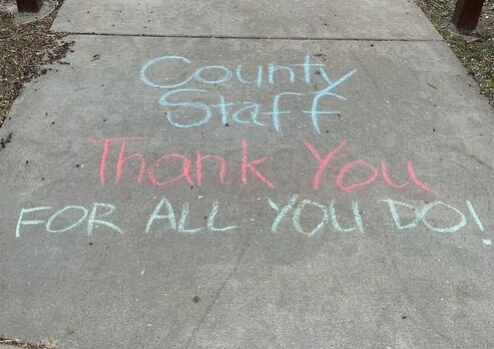 County
Staff
Thank You
FOR ALL YOU DO!